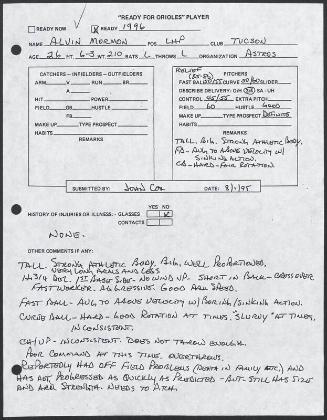 "READY FOR ORIOLES" PLAYER
READY NOW READY 1996
NAME ALVIN MORMON POS LHP CLUB TUCSON
AGE 26 HT 6-3 WT 210 BATS L THROWS L ORGANIZATION ASTROS
CATCHERS - INFIELDERS - OUTFIELDERS
ARM V RUN BR
A
HIT POWER
FIELD GR HUSTLE
MAKE UP TYPE PROSPECT
HABITS
REMARKS
RELIEF PITCHERS
FAST BALL CURVE SLIDER
DESCRIBE DELIVERY: O/H SA - UH
CONTROL 45/55 EXTRA PITCH
FIELD 60 HUSTLE GOOD
MAKE UP TYPE PROSPECT DEFINITE
HABITS
REMARKS
TALL, BIG, STRONG ATHLETIC BODY.
FB - AVG TO ABOVE VELOCITY W/
SINKING ACTION.
CB - HARD - FAIR ROTATION.
SUBMITTED BY: JOHN COX DATE: 8/1/95
YES NO
HISTORY OF INJURIES OR ILLNESS: - GLASSES
CONTACTS
NONE.
OTHER COMMENTS IF ANY:
TALL, STRONG ATHLETIC BODY, BIG, WELL PROPORTIONED,
VERY LONG ARMS AND LEGS
HI 3/4 DEL. 1ST BASE SIDE - NO WIND UP. SHORT IN BACK - CROSSOVER
FAST WORKER. AGGRESSIVE. GOOD ARM SPEED.
FAST BALL - AVG TO ABOVE VELOCITY W/ BORING/SINKING ACTION.
CURVE BALL - HARD - GOOD ROTATION AT TIMES. "SLURVY" AT TIMES,
INCONSISTENT.
CH/UP - INCONSISTENT. DOES NOT THROW ENOUGH.
POOR COMMAND AT THIS TIME. OVERTHROWS.
REPORTEDLY HAD OFF FIELD PROBLEMS (DEATH IN FAMILY ETC.) AND
HAS NOT PROGRESSED AS QUICKLY AS PREDICTED - BUT STILL HAS SIZE
AND ARM STRENGTH. NEEDS TO PITCH.